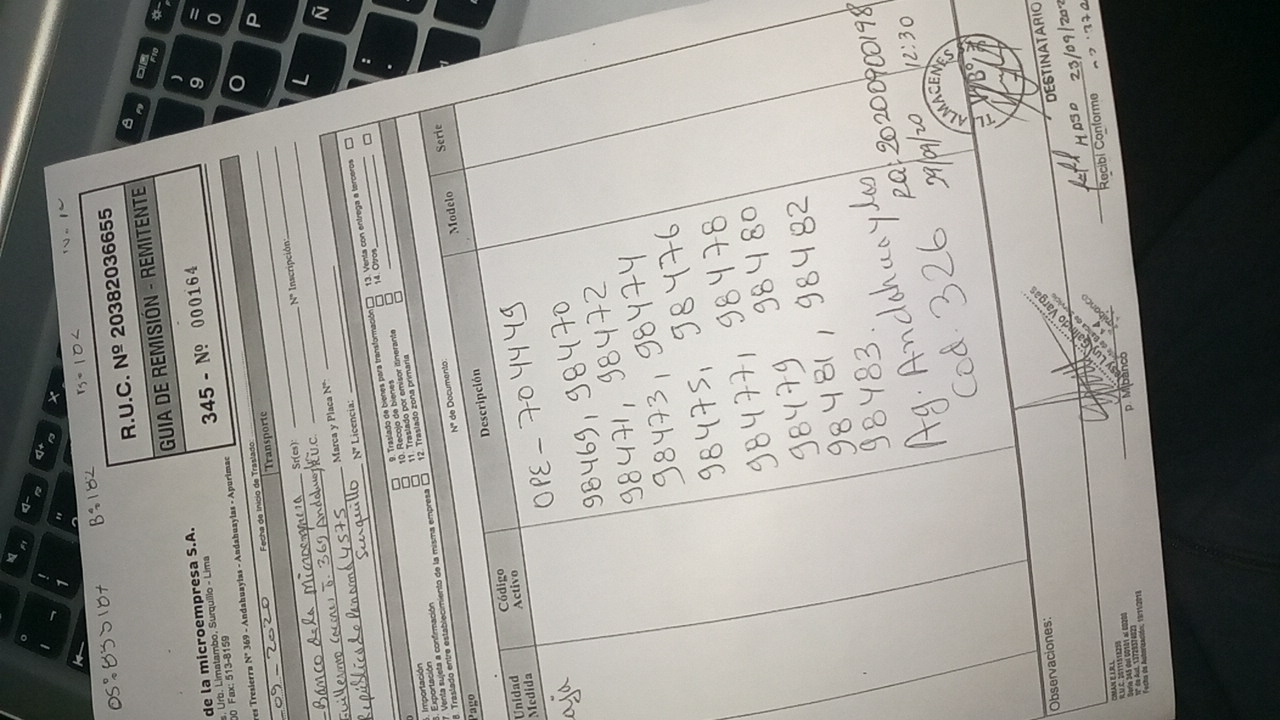 R.U.C. Nº 20382036655
GUIA DE REMISIÓN - REMITENTE
345 - Nº 000164
de la microempresa S.A.
Urb. Limatambo, Surquillo - Lima
Fax: 513-8159
Nº 369 - Andahuaylas - Andahuaylas - Apurimac
Fecha de Inicio de Traslado:
Transporte
Banco de la Microempresa
Sr(es):
Nº Inscripción:
Marca y Placa Nº:
Republica de Panamá 4575
Surquillo
Nº Licencia:
Importación
Exportación
Venta sujeta a confirmación
8. Traslado entre establecimiento de la misma empresa
9. Traslado de bienes para transformación
10. Recojo de bienes
11. Traslado por emisor itinerante
12. Traslado zona primaria
13. Venta con entrega a terceros
14. Otros
Pago
Nº de Documento:
Unidad Medida
Código Activo
Descripción
Modelo
Serie
OPE - 704449
98469, 98470
98471, 98472
98473, 98474
98475, 98476
98477, 98478
98479 98480
98481, 98482
98483.
Ag. Andahuaylas
Cod. 326
RQ: 2020900198
29/09/20 12:30
ALMACENES
Observaciones:
p. Mibanco
Recibí Conforme
DESTINATARIO